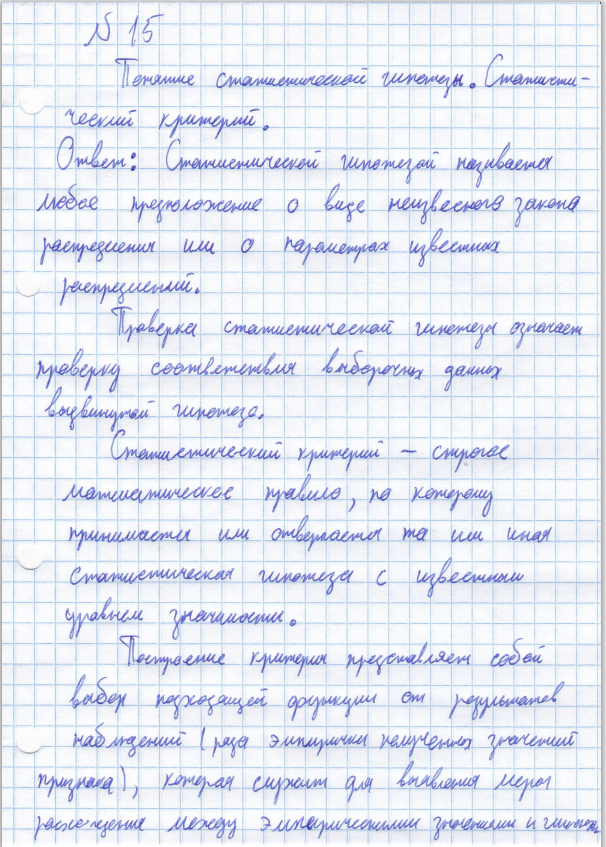 № 15
Понятие статистической гипотезы. Статисти-
ческий критерий.
Ответ: Статистической гипотезой называется
любое предположение о виде неизвестного закона
распределения или о параметрах известных
распределений.
Проверка статистической гипотезы означает
проверку соответствия выборочных данных
выдвинутой гипотезе.
Статистический критерий – строгое
математическое правило, по которому
принимается или отвергается та или иная
статистическая гипотеза с известным
уровнем значимости.
Построение критерия представляет собой
выбор подходящей функции от результатов
наблюдений (ряда эмпирически полученных значений
признака), которая служит для выявления меры
расхождения между эмпирическими значениями и гипотез